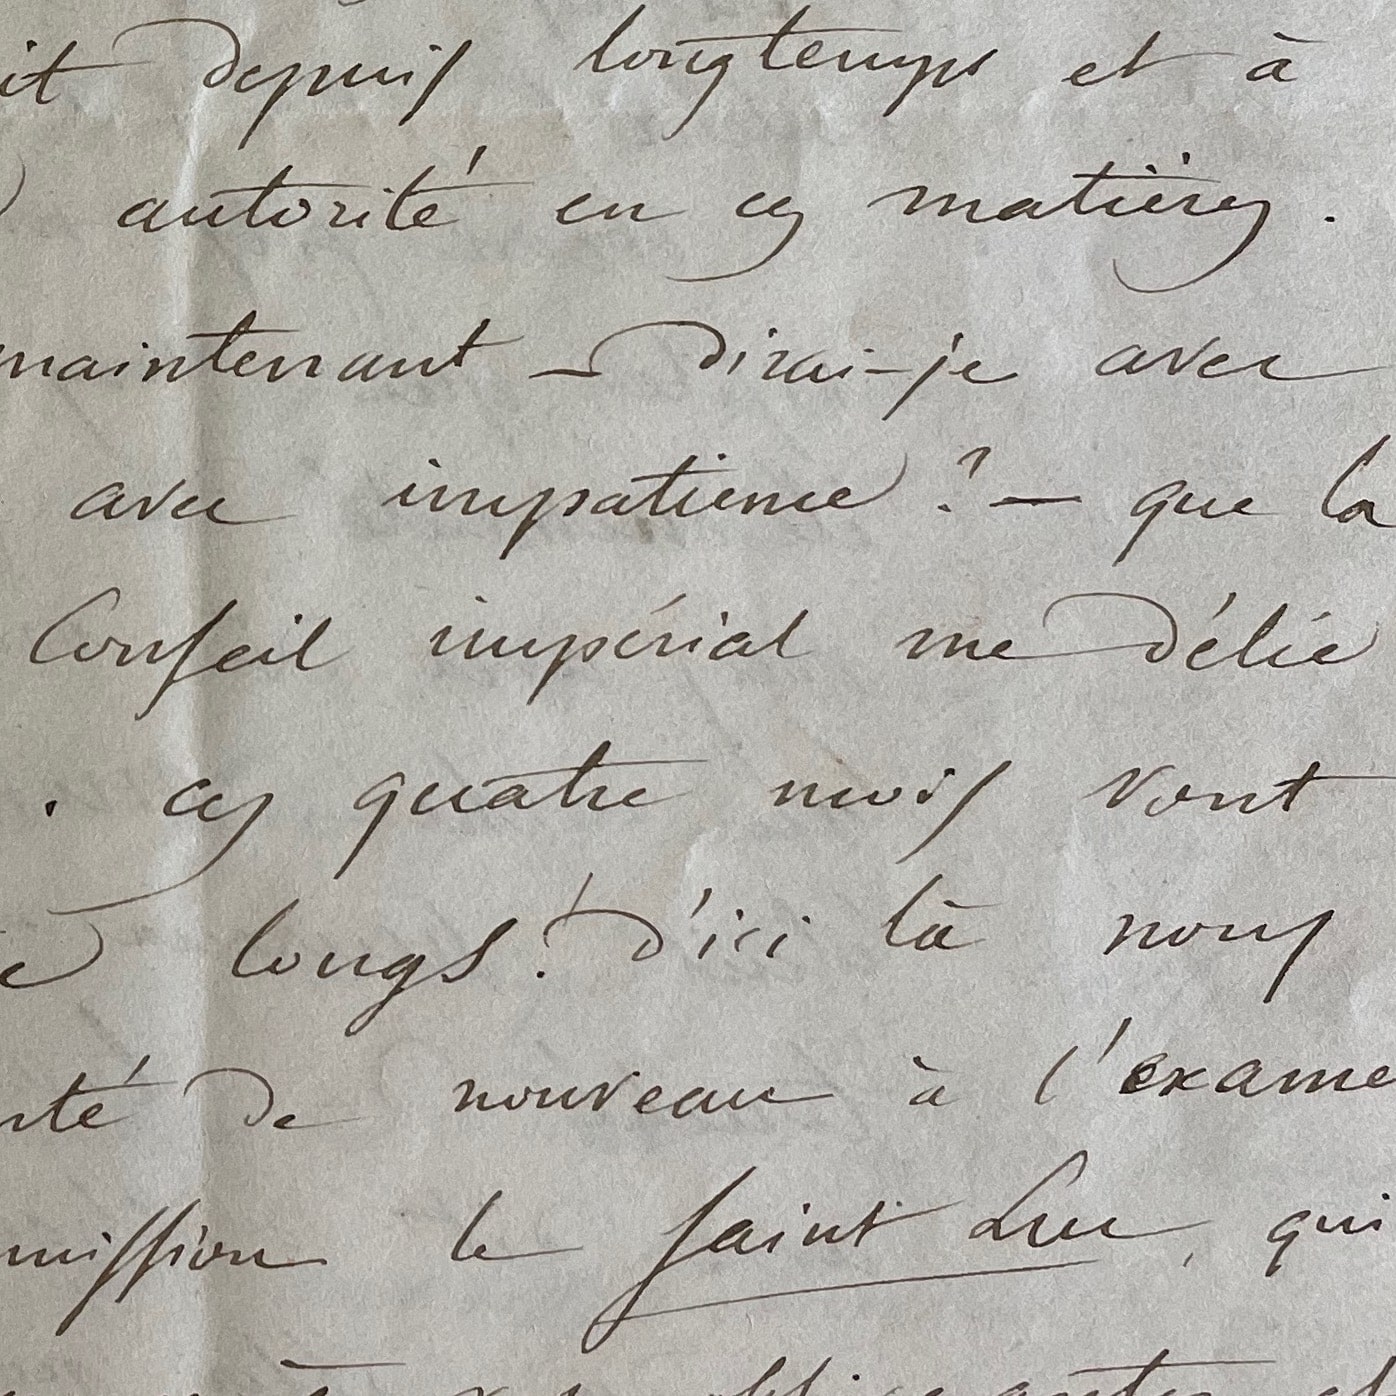 it depuis longtemps et à
autorité en ces matières.
maintenant — dirai-je avec
avec impatience ? — que la
Conseil impérial me délie
. ces quatre mois vont
longs ! d'ici là nous
rté de nouveau à l'exame
mission le Saint Luc, qui